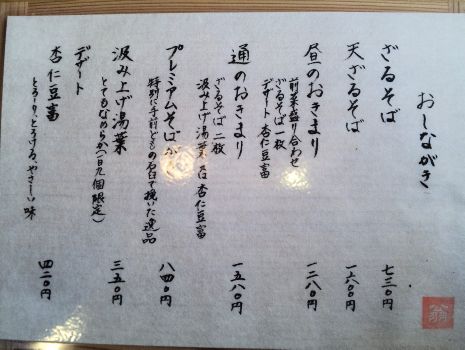 おしながき
ざるそば 七三〇円
天ざるそば 一六〇〇円
昼のおきまり 一二八〇円
前菜盛り合わせ
ざるそば一枚
デザート 杏仁豆富
通のおきまり 一五八〇円
ざるそば二枚
汲み上げ湯葉又は杏仁豆富
プレミアムそば 八四〇円
特別に手前どもの石臼で挽いた逸品
汲み上げ湯葉 三五〇円
とてもなめらか(一日九個限定)
デザート
杏仁豆富 四二〇円
とろーり、とろける、やさしい味